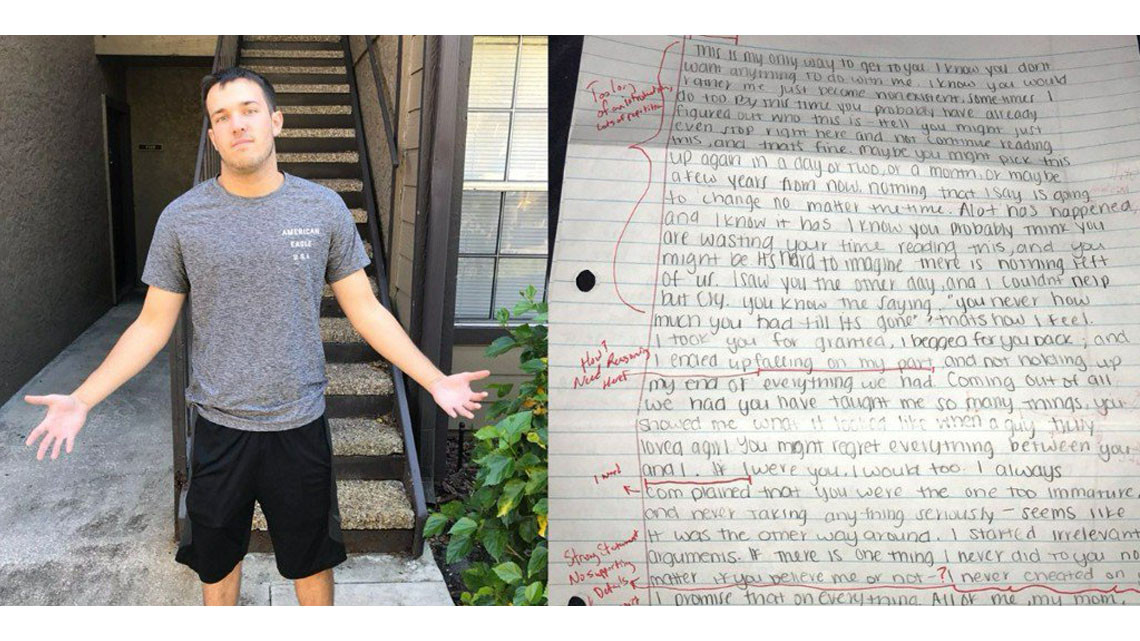 AMERICAN
EAGLE
USA
This is my only way to get to you. I know you don't
want anything to do with me. I know you would
rather me just become nonexistent, sometimes I
do too. By this time you probably have already
figured out who this is - Hell you might just
even stop right here and not continue reading
this, and that's fine. maybe you might pick this
up again in a day or two, or a month, or maybe
a few years from now, nothing that I say is going
to change no matter the time. Alot has happened,
and I know it has I know you probably think you
are wasting your time reading this, and you
might be. It's hard to imagine there is nothing left
of us. I saw you the other day, and I couldnt help
but cry. you know the saying, "you never how
much you had till its gone" thats how I feel.
I took you for granted, I begged for you back, and
I ended up falling on my part, and not holding up
my end of everything we had. Coming out of all
we had you have taught me so many things, you
showed me what it looked like when a guy truly
loved a girl. You might regret everything between you
and I. If I were you, I would too. I always
complained that you were the one too immature
and never taking anything seriously - seems like
it was the other way around. I started irrelevant
arguments. If there is one thing I never did to you no
matter if you believe me or not - ? I never cheated on
I promise that on everything. All of me, my mom,
Too long
of an introduction,
Lots of repetition
How?
Need Reasoning
Here
Strong Statement
No supporting
Details